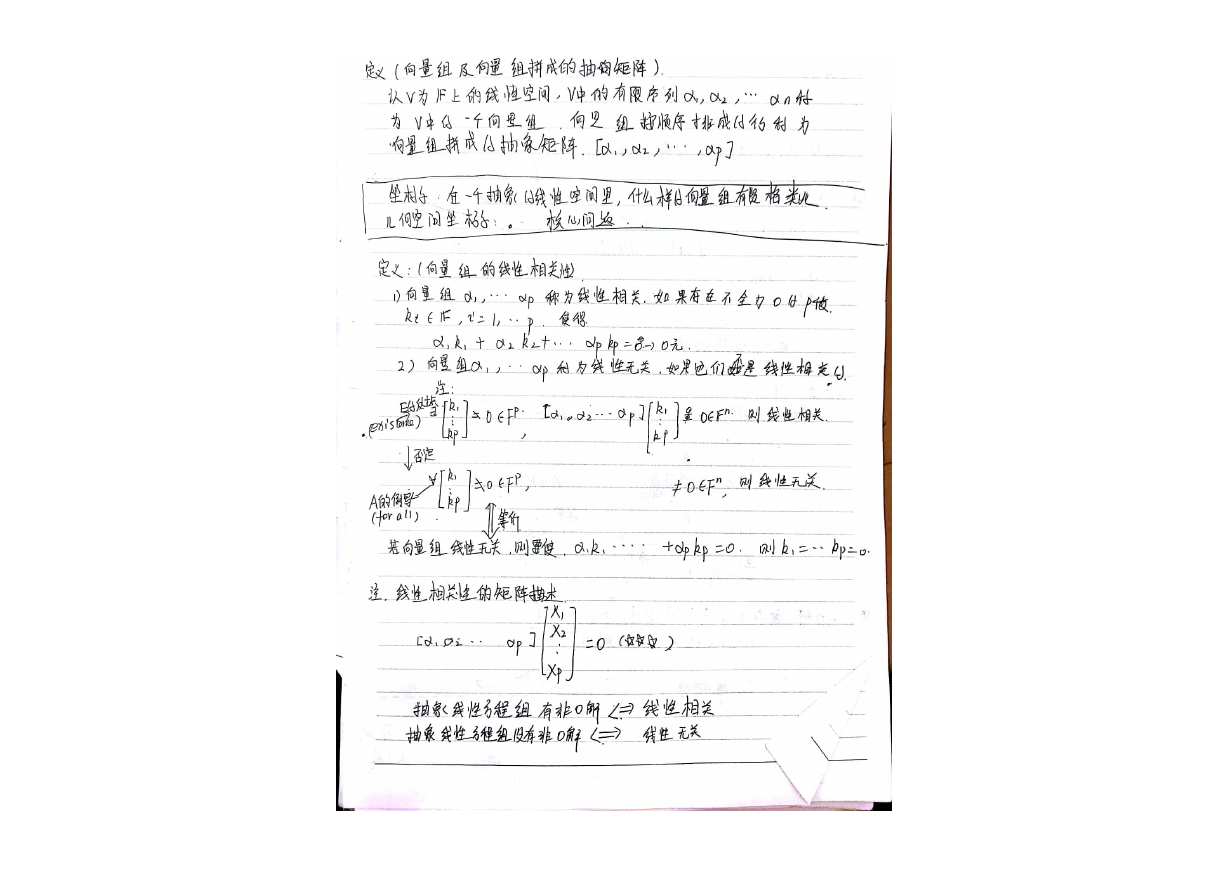 定义(向量组及向量组拼成的抽象矩阵).
认V为F上的线性空间,V中的有限序列α₁,α₂,… αn称
为V中的一个向量组.向量组按顺序排成的行称为
向量组拼成的抽象矩阵.[α₁,α₂,…,αp]
坐标系:在一个抽象的线性空间里,什么样的向量组有资格类比
几何空间坐标系:。 核心问题..
定义:(向量组的线性相关性)
1)向量组 α₁,… αp 称为线性相关.如果存在不全为0的p个数.
ki∈F,i=1,…p.使得
α₁k₁+α₂k₂+… αpkp=0→0元.
2)向量组α₁,… αp称为线性无关.如果它们不是线性相关的.
注:
E的倒写 ∃[k₁ ⋮ kp]≠0∈Fᵖ, [α₁,α₂…αp][k₁ ⋮ kp]=0∈Fⁿ.则线性相关.
(existence)
↓否定
∀[k₁ ⋮ kp]≠0∈Fᵖ, ≠0∈Fⁿ,则线性无关.
A的倒写
(for all)
⇕等价
若向量组线性无关,则要使.α₁k₁…… +αpkp=0.则k₁=…kp=0.
注.线性相关性的矩阵描述
[α₁ α₂ … αp][x₁ x₂ ⋮ xp]=0 (☆☆☆)
抽象线性方程组有非0解<=>线性相关
抽象线性方程组没有非0解<=> 线性无关